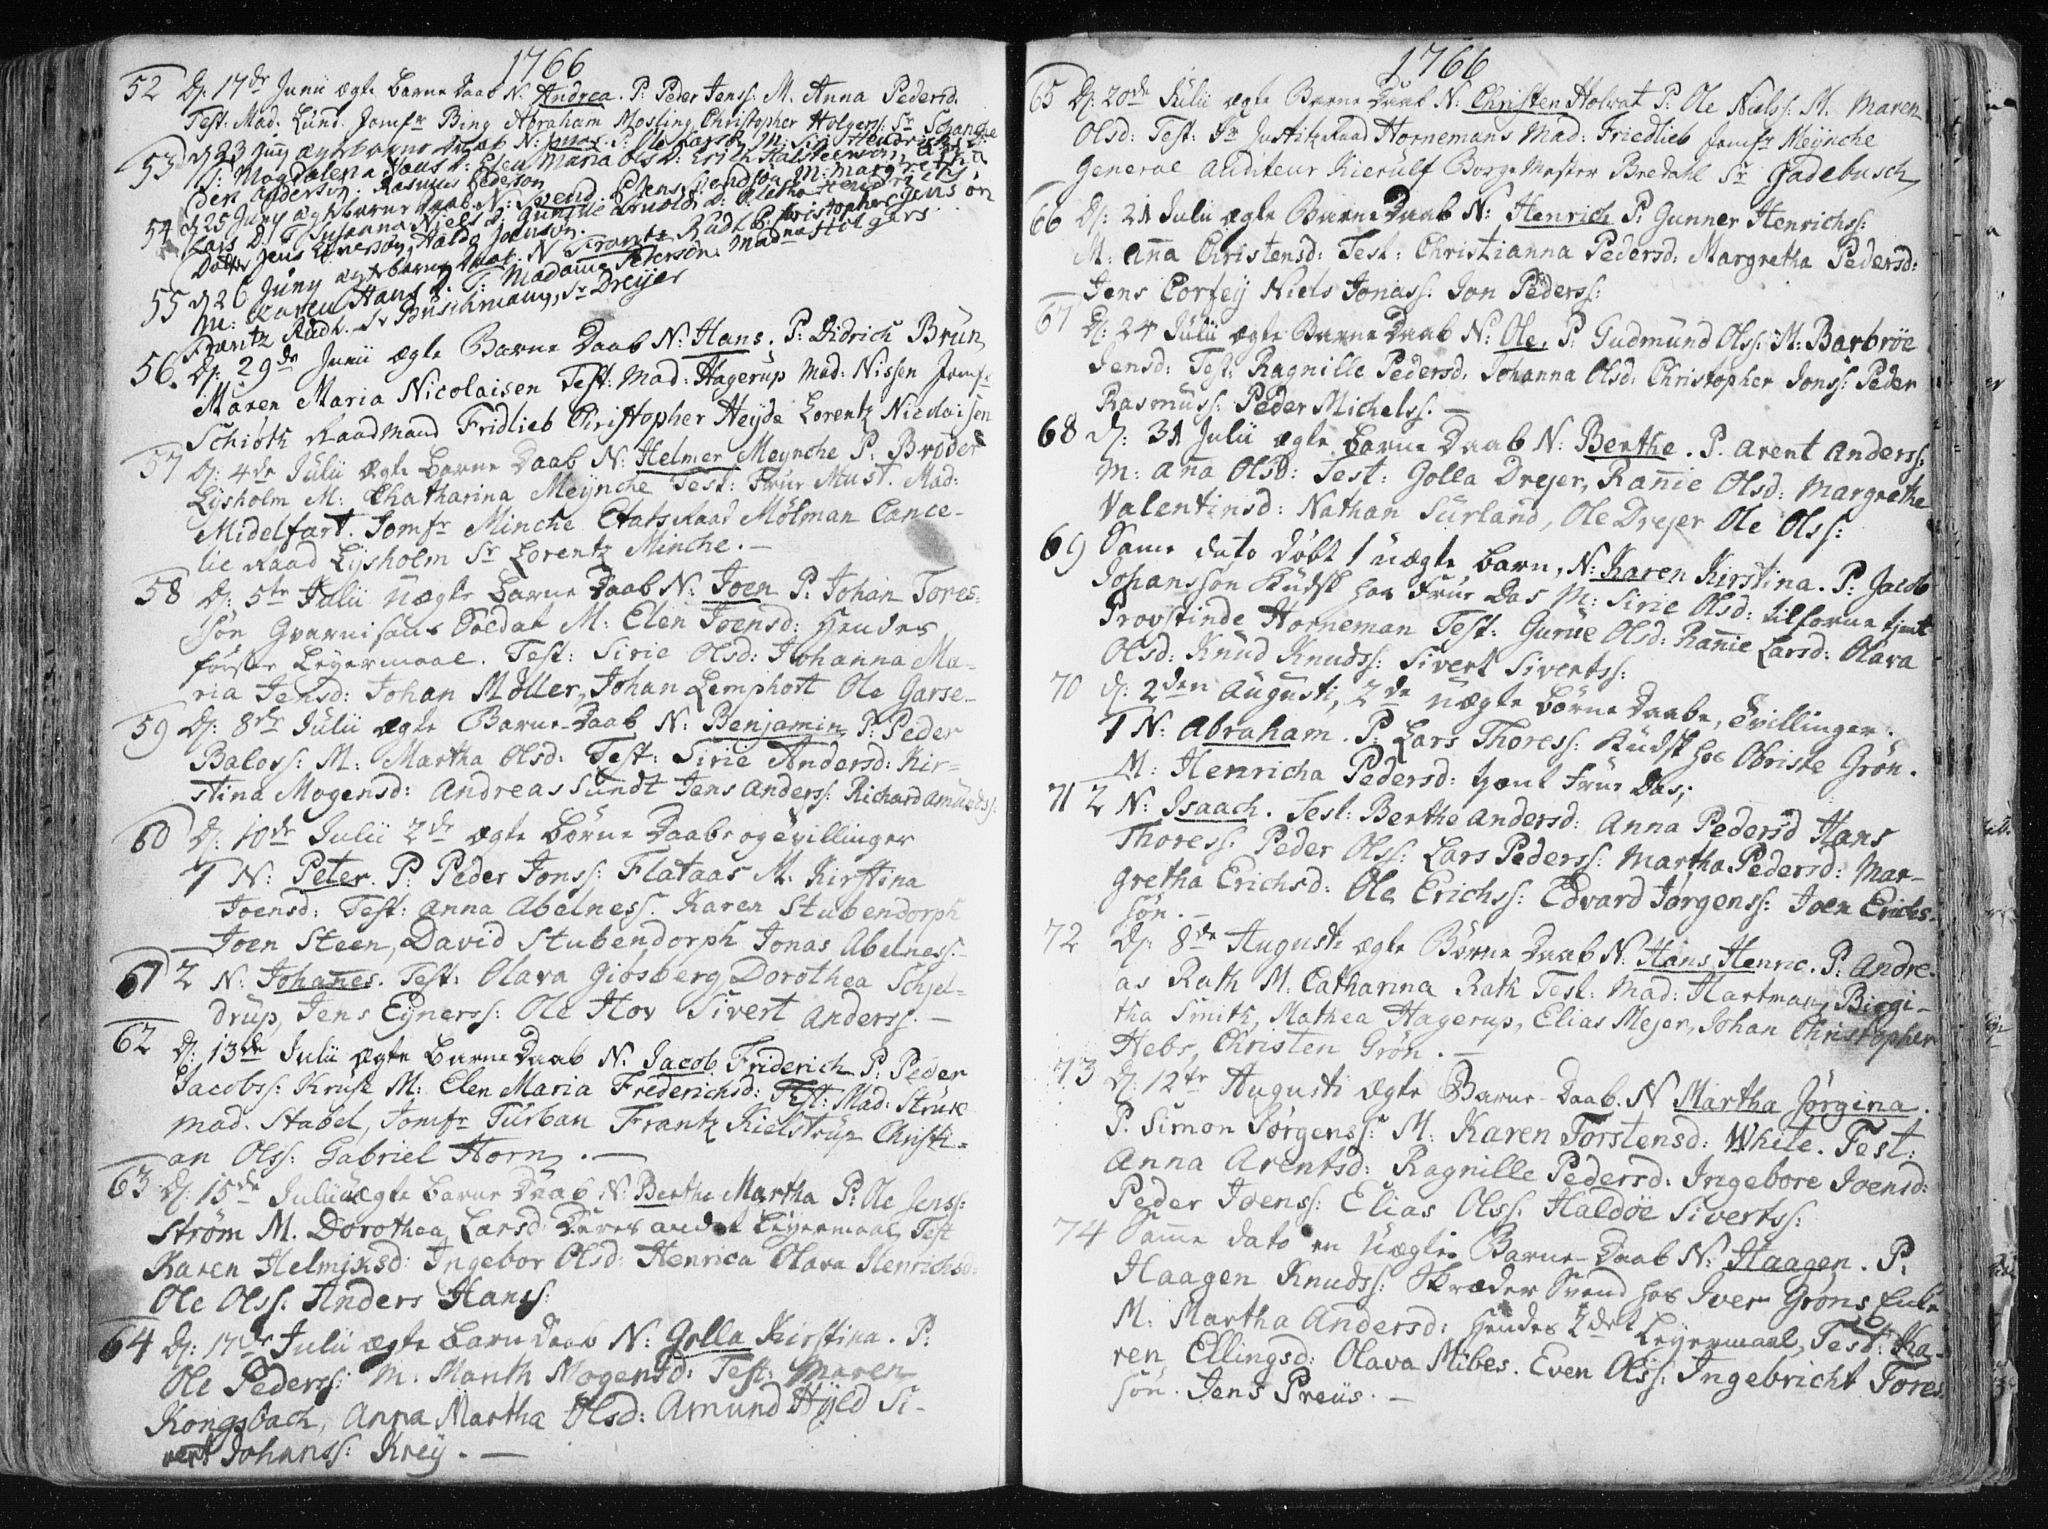 1766
52 D: 17de Junii ægte Barne Daab N: Andrea. P: Peder Jenss: M. Anna Pedersd.
Test: Mad. Lund. Jomfr Bing Abraham Mosling Christopher Holgers: Sr Schanche
53 D 23 Juny ægte barne daab N: P: Ole Larsøn M: Siri Hendrichs D:
T: Magdalena Hans D: Elen Maria Ols D: Erich Halsteensøn, Lars
Peder Andersen. Rasmus Pederson
54 D 25 Juny ægte barne daab N: Svend P: Jens M: Margrethe
Lars D: T: Susanna Niels D: Gunille Arnols D: Hendrichs
Dotter Jens Iversøn, Haldo Jonsøn. Christophersøn
55 D 26 Juny ægte barne daab. N Frantz, P: Radl Jens øn
M: Karen Hans D. T: Madame Pederson, Madme Holgers
Frantz Radl. Sr Buschmann, Sr Dreyer
56. D: 29de Junii ægte Barne Daab N: Hans. P: Didrich Brun
Maren Maria Nicolaisen Test: Mad: Hagerup Mad: Nissen Jomfr
Schiøth Raadmand Fridlieb Christopher Heyde Lorentz Nicolaisen
57 D: 4de Julii Ægte Barne Daab N: Helmer Meynche P: Broder
Lysholm M: Chatharina Meÿnche Test: Frue Must. Mad:
Midelfart. Jomfr Minche Etats Raad Mølman Cance-
lie Raad Lysholm Sr Lorentz Minche. —
58 D: 5te Julii Uægte Barne Daab N: Joen P: Johan Tores-
søn Gvarnisons Soldat M: Elen Joensd: Hendes
første Leyermaal. Test: Sirie Olsd: Johanna Ma-
ria Jensd: Johan Møller, Johan Lemphort Ole Garse-
59 D: 8de Julii Ægte Barne-Daab N: Benjamin P: Peder
Baloss: M: Martha Olsd: Test: Sirie Andersd: Kir-
stina Mogensd: Andreas Sundt Jens Anderss: Richard Amundss:
60 D: 10de Julii 2de ægte Børne Daabe og tvillinger
1 N: Peter. P: Peder Jonss: Flataas M. Kirstina
Joensd: Test: Anna Abelness. Karen Stubendorph
Joen Steen, David Stubendorph Jonas Abelness. —
61 2 N: Johanes. Test: Olava Giøsberg, Dorothea Schjel-
drup, Jens Eÿnerss: Ole Hov Sivert Anderss. —
62 D: 13de Julii Ægte Barne Daab N: Jacob Friderich P: Peder
Jacobss: Kruse M: Elen Maria Frederichsd: Test: Mad: Struse
Mad. Stabel, Jomfr Turban Frantz Kielstrup Christi-
an Olss: Gabriel Horn. —
63 D: 15de Julii uægte Barne Daab N: Berthe Martha P: Ole Jenss:
Strøm M. Dorothea Larsd: Deres andet Leyermaal Test
Karen Helmiksd: Ingebor Olsd: Henrica Olava Henrichsd:
Ole Olss. Anders Hanss:
64 D: 17de Julii ægte Barne Daab N: Golla Kirstina. P:
Ole Pederss: M: Marith Mogensd: Test: Maren
Kongsbach, Anna Martha Olsd: Amund Hyld Si-
vert Johanss: Krey. —
1766
65 D: 20de Julii ægte Barne Daab N: Christen Holvat P: Ole Nielss: M. Maren
Olsd: Test: Fr Justitz Raad Hornemans Mad: Friedlieb Jomfr Meÿnche
General Auditeur Kierulf Borge Mester Bredahl Sr Gadebusch
66 D: 21 Julii ægte Barne Daab N: Henrich P: Gunner Henrichss:
M: Anna Christensd: Test: Christianna Pedersd: Margretha Pedersd:
Jens Corfey Niels Jonass: Jon Pederss:
67 D: 24 Julii ægte Barne Daab N: Ole. P: Gudmund Olss: M: Barbrøe
Jensd: Test: Ragnille Pedersd. Johanna Olsd: Christopher Jonss: Peder
Rasmuss: Peder Michelss. —
68 D: 31 Julii ægte Barne Daab N: Berthe. P. Arent Anderss:
M: Anna Olsd: Test: Golla Dreyer, Ranie Olsd: Margrethe
Valentinsd: Nathan Surland, Ole Drejer Ole Olss:
69 Same dato døbt 1 uægte Barn, N: Karen Kirstina. P: Jacob
Johanssøn Kudsk hos Frue Das M: Sirie Olsd: tilforne tjent
Provstinde Horneman Test: Gurue Olsd: Ranie Larsd: Olava
Olsd: Knud Knudss: Sivert Sivertss:
70 D: 2den Augusti, 2de uægte Børne Daabe, Tvillinger.
1 N: Abraham. P: Lars Thoress: Kudsk hos Christe Grøn.
M: Henricha Pedersd: tjent Frue Das;
71 2 N: Isaach. Test: Berthe Andersd: Anna Pedersd Hans
Thoress: Peder Olss: Lars Pederss: Martha Pedersd: Mar-
gretha Erichsd: Ole Erichss: Edvard Jørgenss: Joen Erichs-
søn. —
72 D: 8de Augusti ægte Børne Daab N: Hans Henric. P: Andre-
as Rath M: Catharina Rath Test: Mad: Hartman, Birgi-
tha Smith, Mathea Hagerup, Elias Mejer, Johan Christopher
Hebs, Christen Grøn. —
73 D: 12te Augusti ægte Barne-Daab. N Martha Jørgina.
P. Simon Jørgenss: M. Karen Torstensd: White. Test:
Anna Arentsd: Ragnille Pedersd: Ingebore Joensd:
Peder Joenss: Elias Olss. Haldøe Sivertss:
74 Samme dato en Uægte Barne-Daab N: Haagen. P:
Haagen Knudss: Skræder Svend hos Iver Grøns Enke
M: Martha Andersd: Hendes 2det Leyermaal, Test: Ka-
ren Ellingsd: Olava Mibes. Even Olss: Ingebricht Tores-
søn. Jens Preüs. —